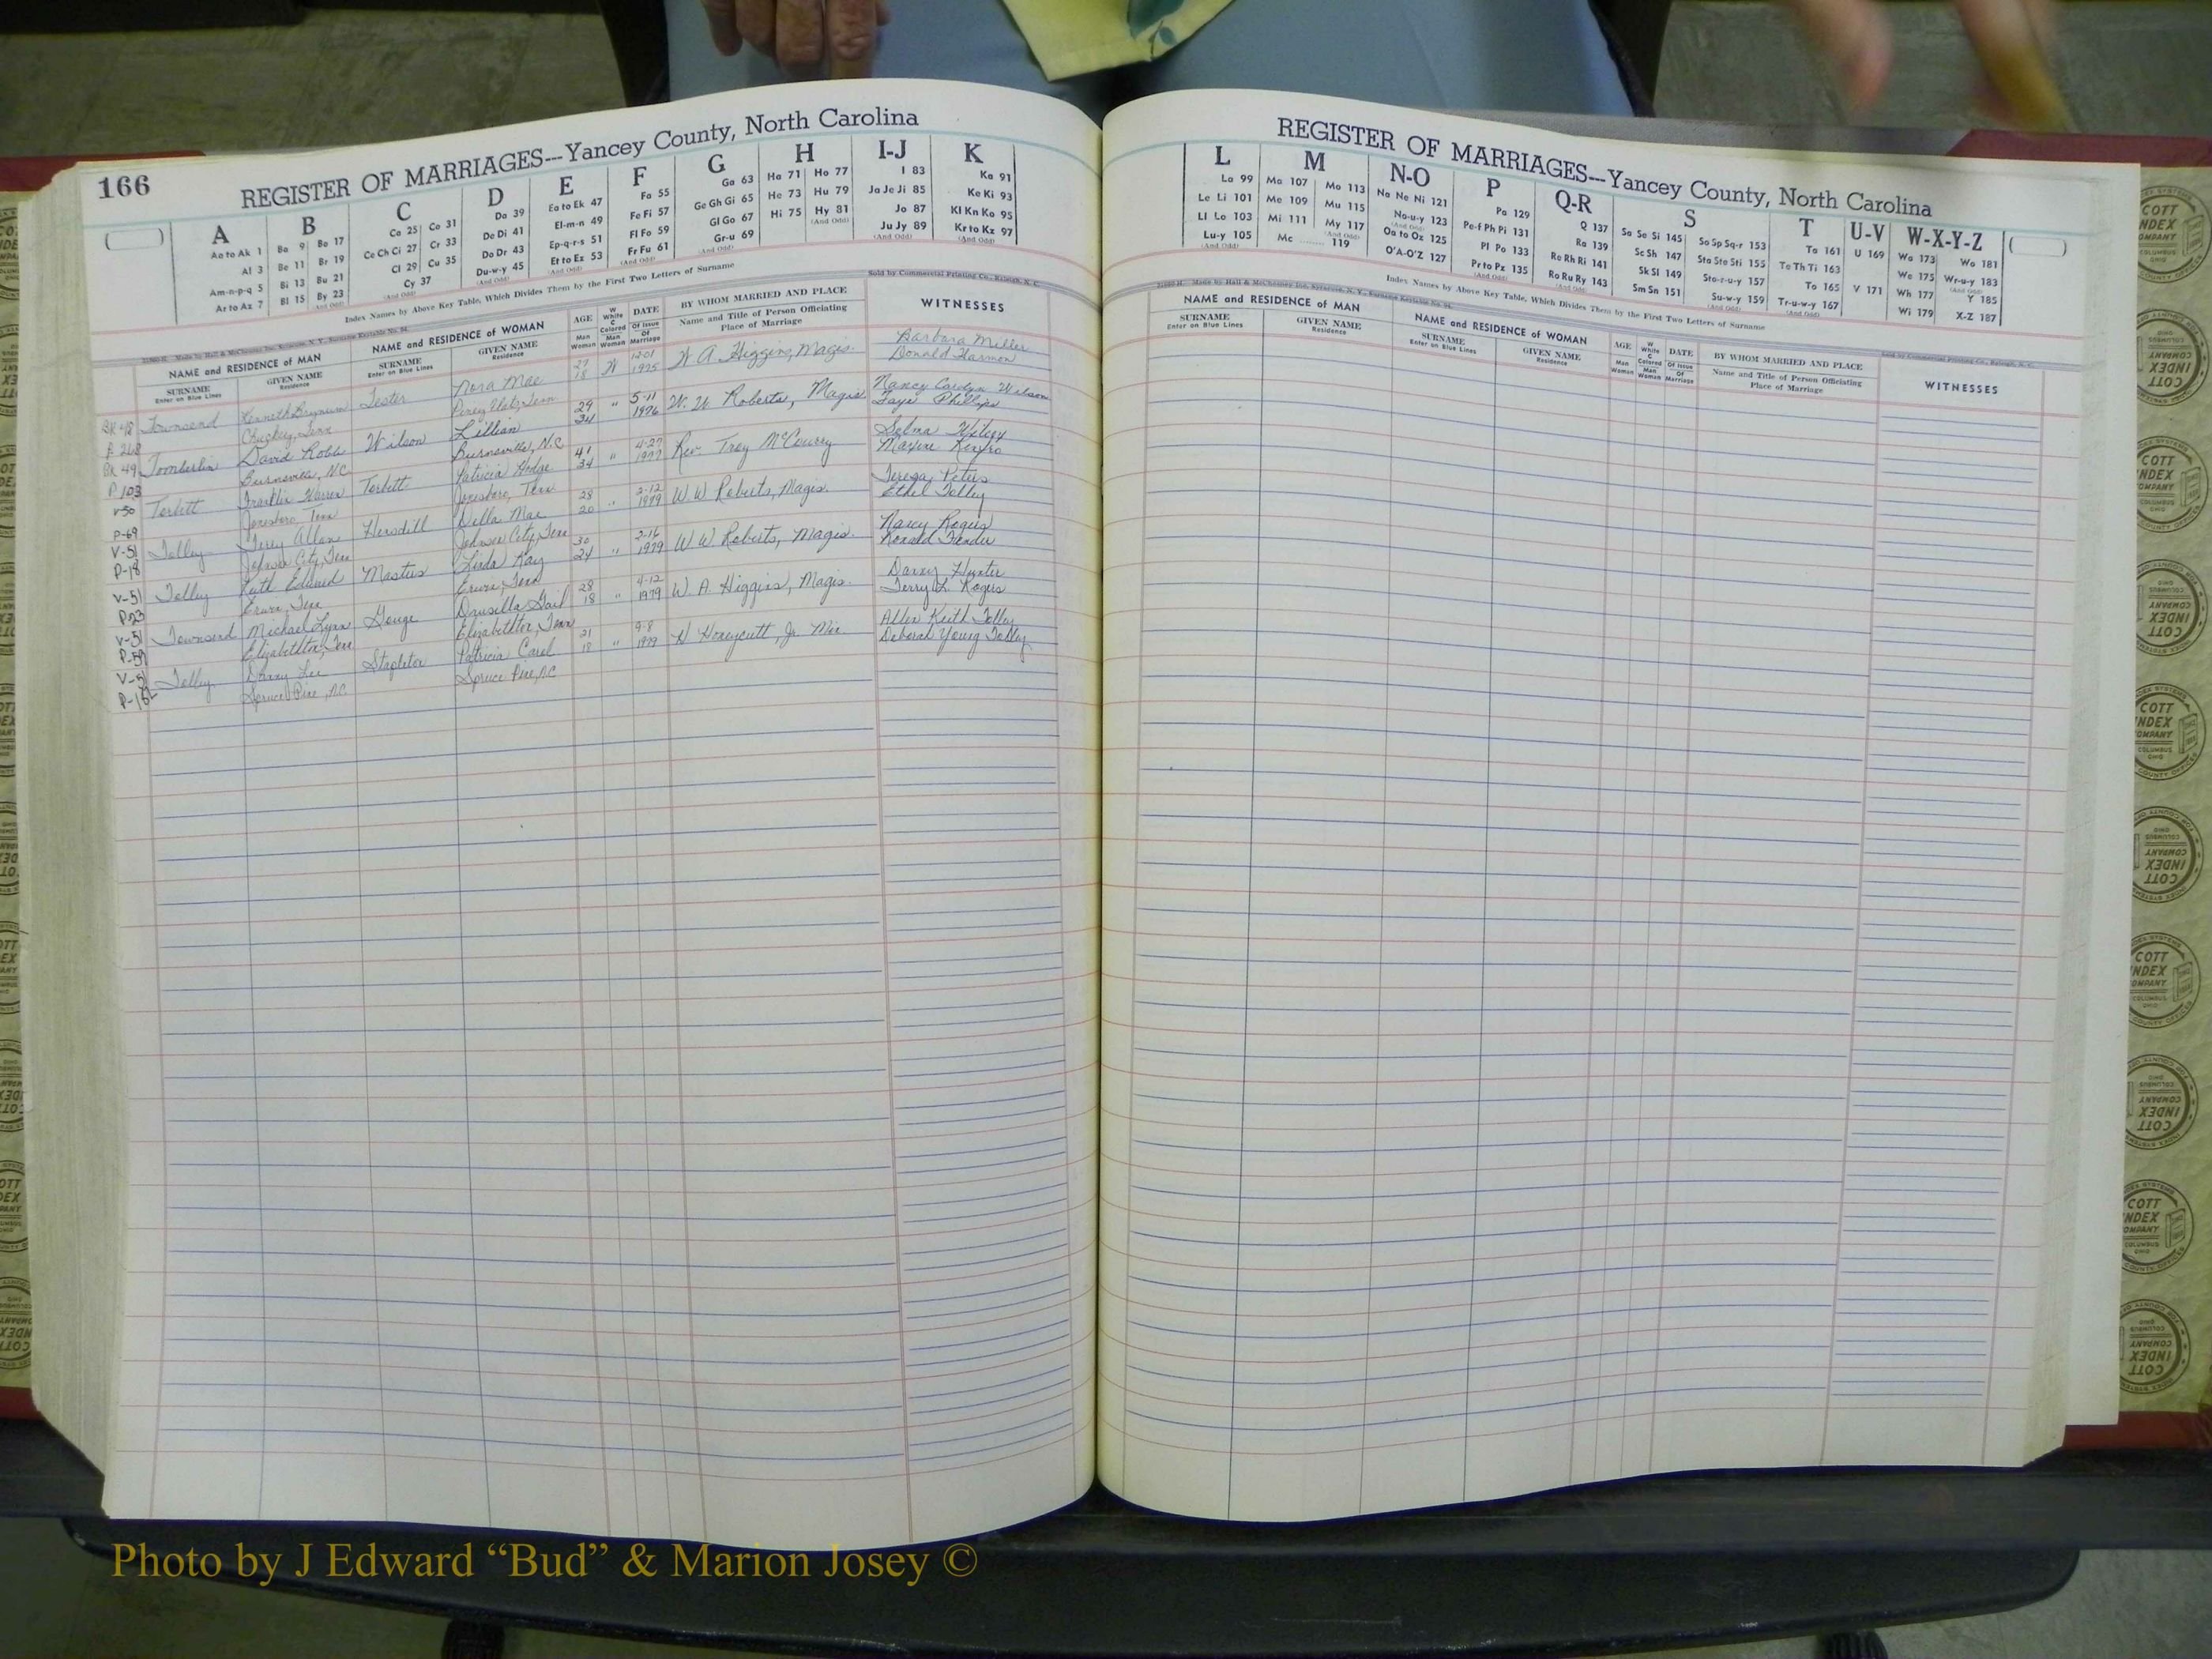 166
REGISTER OF MARRIAGES---Yancey County, North Carolina
A B C D E F G H I-J K
Aa to Ak 1 Ba 9 Bo 17 Ca 25 Co 31 Da 39 Ea to Ek 47 Fa 55 Ga 63 Ha 71 Ho 77 I 83 Ka 91
Al 3 Be 11 Br 19 Ce Ch Ci 27 Cr 33 De Di 41 El-m-n 49 Fe Fi 57 Ge Gh Gi 65 He 73 Hu 79 Ja Je Ji 85 Ke Ki 93
Am-n-p-q 5 Bi 13 Bu 21 Cl 29 Cu 35 Do Dr 43 Ep-q-r-s 51 Fl Fo 59 Gl Go 67 Hi 75 Hy 81 Jo 87 Kl Kn Ko 95
Ar to Az 7 Bl 15 By 23 Cy 37 Du-w-y 45 Et to Ez 53 Fr Fu 61 Gr-u 69 Ju Jy 89 Kr to Kz 97
Index Names by Above Key Table, Which Divides Them by the First Two Letters of Surname
Sold by Commercial Printing Co., Raleigh, N. C.
NAME and RESIDENCE of MAN NAME and RESIDENCE of WOMAN AGE W White C Colored DATE BY WHOM MARRIED AND PLACE WITNESSES
SURNAME Enter on Blue Lines GIVEN NAME Residence SURNAME Enter on Blue Lines GIVEN NAME Residence Man Woman Man Woman Of Issue Of Marriage Name and Title of Person Officiating Place of Marriage
Townsend Kenneth Nora Mae 27 18 W 12-01 1975 W A Higgins, Magis. Barbara Miller
Donald Harmon
Tomberlin David Robb Wilson Lillian 29 34 " 5-11 1976 W. W. Roberts, Magis. Nancy Carolyn Wilson
P 103 Burnsville, NC Burnsville, N.C. Faye Phillips
V-50 Torbett Franklin Warren Torbett Patricia Hodge 41 34 " 4-27 1977 Rev. Troy McCourry Selma
P-69 Jonesboro, Tenn Jonesboro, Tenn Maxine
V-51 Tolley Terry Allan Della Mae 28 20 " 2-12 1979 W W Roberts, Magis. Teresa Peters
P-18 Johnson City, Tenn Johnson City, Tenn Ethel Tolley
V-51 Tolley Keith Edward Masters Linda Kay 30 24 " 2-16 1979 W W Roberts, Magis. Nancy Rogers
P-23 Erwin, Tenn Erwin, Tenn Ronald
V-51 Townsend Michael Lynn Gouge Drusilla Gail 28 18 " 4-12 1979 W. A. Higgins, Magis. Danny Hunter
P-59 Elizabethton, Tenn Elizabethton, Tenn Terry L. Rogers
V-51 Tolley Danny Lee Stapleton Patricia Carol 21 18 " 9-8 1979 Honeycutt, Jr. Min. Allen Keith Tolley
Spruce Pine, N.C. Spruce Pine, N.C. Deborah Young Tolley
REGISTER OF MARRIAGES---Yancey County, North Carolina
L M N-O P Q-R S T U-V W-X-Y-Z
La 99 Ma 107 Mo 113 Na Ne Ni 121 Pa 129 Q 137 Sa Se Si 145 So Sp Sq-r 153 Ta 161 U 169 Wa 173 Wo 181
Le Li 101 Me 109 Mu 115 No-u-y 123 Pe-f Ph Pi 131 Ra 139 Sc Sh 147 Sta Ste Sti 155 Te Th Ti 163 We 175 Wr-u-y 183
Ll Lo 103 Mi 111 My 117 Oa to Oz 125 Pl Po 133 Re Rh Ri 141 Sk Sl 149 Sto-r-u-y 157 To 165 V 171 Wh 177 Y 185
Lu-y 105 Mc 119 O'A-O'Z 127 Pr to Pz 135 Ro Ru Ry 143 Sm Sn 151 Su-w-y 159 Tr-u-w-y 167 Wi 179 X-Z 187
Index Names by Above Key Table, Which Divides Them by the First Two Letters of Surname
NAME and RESIDENCE of MAN NAME and RESIDENCE of WOMAN AGE W White C Colored DATE BY WHOM MARRIED AND PLACE WITNESSES
SURNAME Enter on Blue Lines GIVEN NAME Residence SURNAME Enter on Blue Lines GIVEN NAME Residence Man Woman Man Woman Of Issue Of Marriage Name and Title of Person Officiating Place of Marriage
COTT INDEX COMPANY COLUMBUS OHIO
Photo by J Edward “Bud” & Marion Josey ©